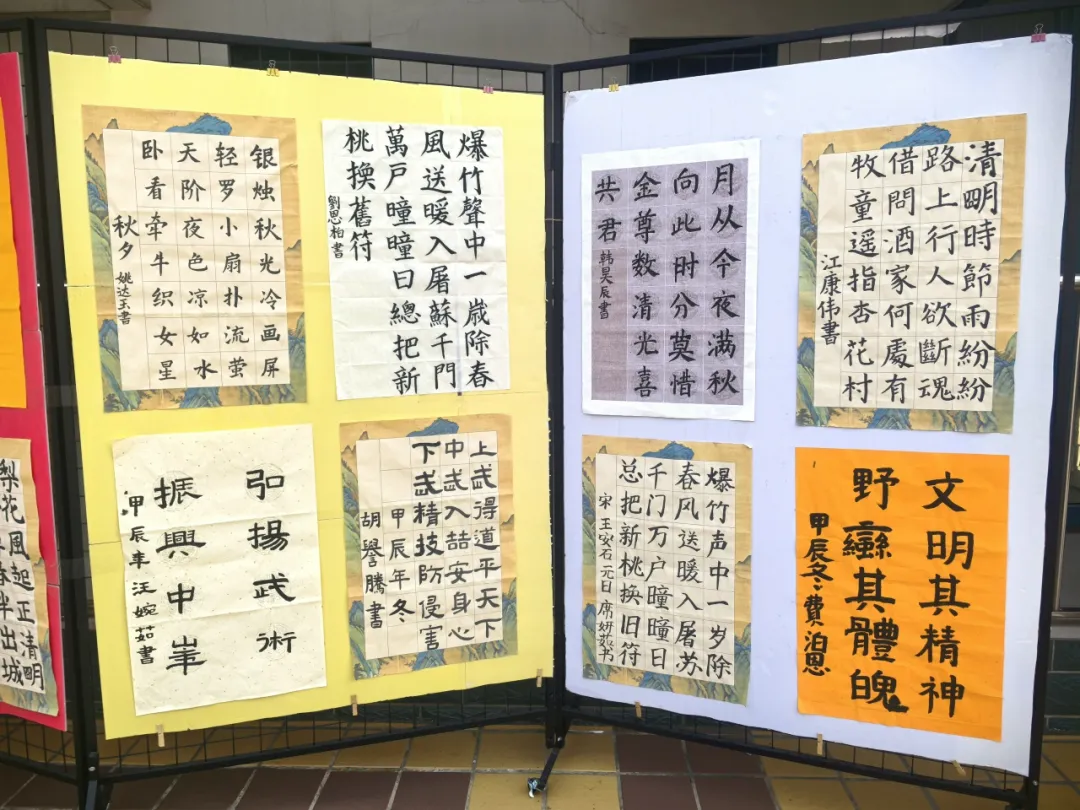 梨花風起正清明
春半出城
银烛秋光冷画屏
轻罗小扇扑流萤
天阶夜色凉如水
卧看牵牛织女星
秋夕
爆竹聲中一歲除春
風送暖入屠蘇千門
萬戶曈曈日總把新
桃換舊符
劉思柏書
弘揚武術
振興中華
甲辰年 汪婉茹書
上武得道平天下
中武入喆安身心
下武精技防侵害
甲辰年冬
胡譽騰書
月从今夜满秋
向此时分莫惜
金尊数清光喜
共君 韩昊辰書
清眀時節雨紛紛
路上行人欲斷魂
借問酒家何處有
牧童遥指杏花村
江康伟書
爆竹声中一岁除
春风送暖入屠苏
千门万户曈曈日
总把新桃换旧符
宋 王安石 元日 席妍茹书
文明其精神
野蠻其體魄
甲辰冬 費泊恩